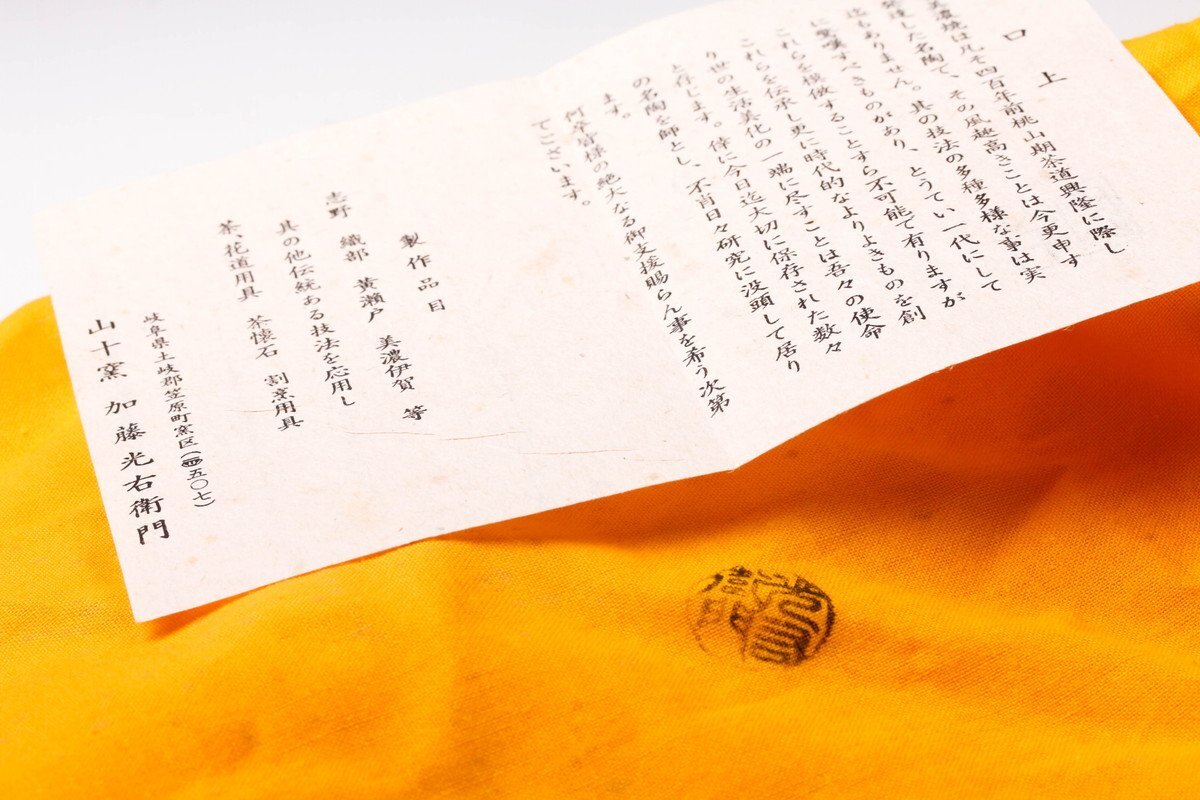 口上
美濃焼は凡そ四百年前桃山期茶道興隆に際し
発達した名陶で、その風趣高きことは今更申す
迄もありません。其の技法の多種多様な事は実
に驚嘆すべきものがあり、とうてい一代にして
これらを模倣することすら不可能で有りますが
これらを伝承し更に時代的なよりよきものを創
り世の生活美化の一端に尽すことは吾々の使命
と存じます。倖に今日迄大切に保存された数々
の名陶を師とし、不肖日々研究に没頭して居り
ます。
何卒皆様の絶大なる御支援賜らん事を希う次第
でございます。
製作品目
志野 織部 黄瀬戸 美濃伊賀 等
其の他伝統ある技法を応用し
茶、花道用具 茶懐石 割烹用具
岐阜県土岐郡笠原町窯区(五〇七)
山十窯 加藤光右衛門